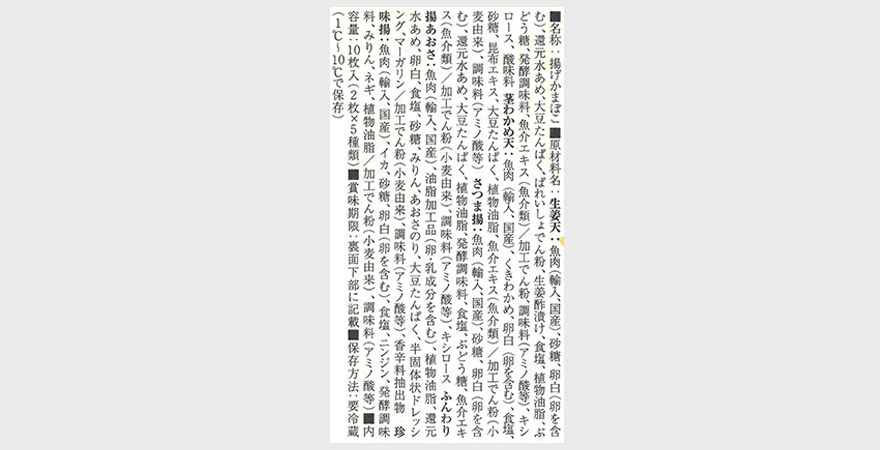 ■名称：揚げかまぼこ ■原材料名：生姜天：魚肉（輸入、国産）、砂糖、卵白（卵を含
む）、還元水あめ、大豆たんぱく、ばれいしょでん粉、生姜酢漬け、食塩、植物油脂、ぶ
どう糖、発酵調味料、魚介エキス（魚介類）／加工でん粉、調味料（アミノ酸等）、キシ
ロース、酸味料 茎わかめ天：魚肉（輸入、国産）、くきわかめ、卵白（卵を含む）、食塩、
砂糖、昆布エキス、大豆たんぱく、植物油脂、魚介エキス（魚介類）／加工でん粉（小
麦由来）、調味料（アミノ酸等） さつま揚：魚肉（輸入、国産）、砂糖、卵白（卵を含
む）、還元水あめ、大豆たんぱく、植物油脂、発酵調味料、食塩、ぶどう糖、魚介エキ
ス（魚介類）／加工でん粉（小麦由来）、調味料（アミノ酸等）、キシロース ふんわり
揚あおさ：魚肉（輸入、国産）、油脂加工品（卵・乳成分を含む）、植物油脂、還元
水あめ、卵白、食塩、砂糖、みりん、あおさのり、大豆たんぱく、半固体状ドレッシ
ング、マーガリン／加工でん粉（小麦由来）、調味料（アミノ酸等）、香辛料抽出物 珍
味揚：魚肉（輸入、国産）、イカ、砂糖、卵白（卵を含む）、食塩、ニンジン、発酵調味
料、みりん、ネギ、植物油脂／加工でん粉（小麦由来）、調味料（アミノ酸等）■内
容量：10枚入（2枚×5種類）■賞味期限：裏面下部に記載■保存方法：要冷蔵
（1℃〜10℃で保存）